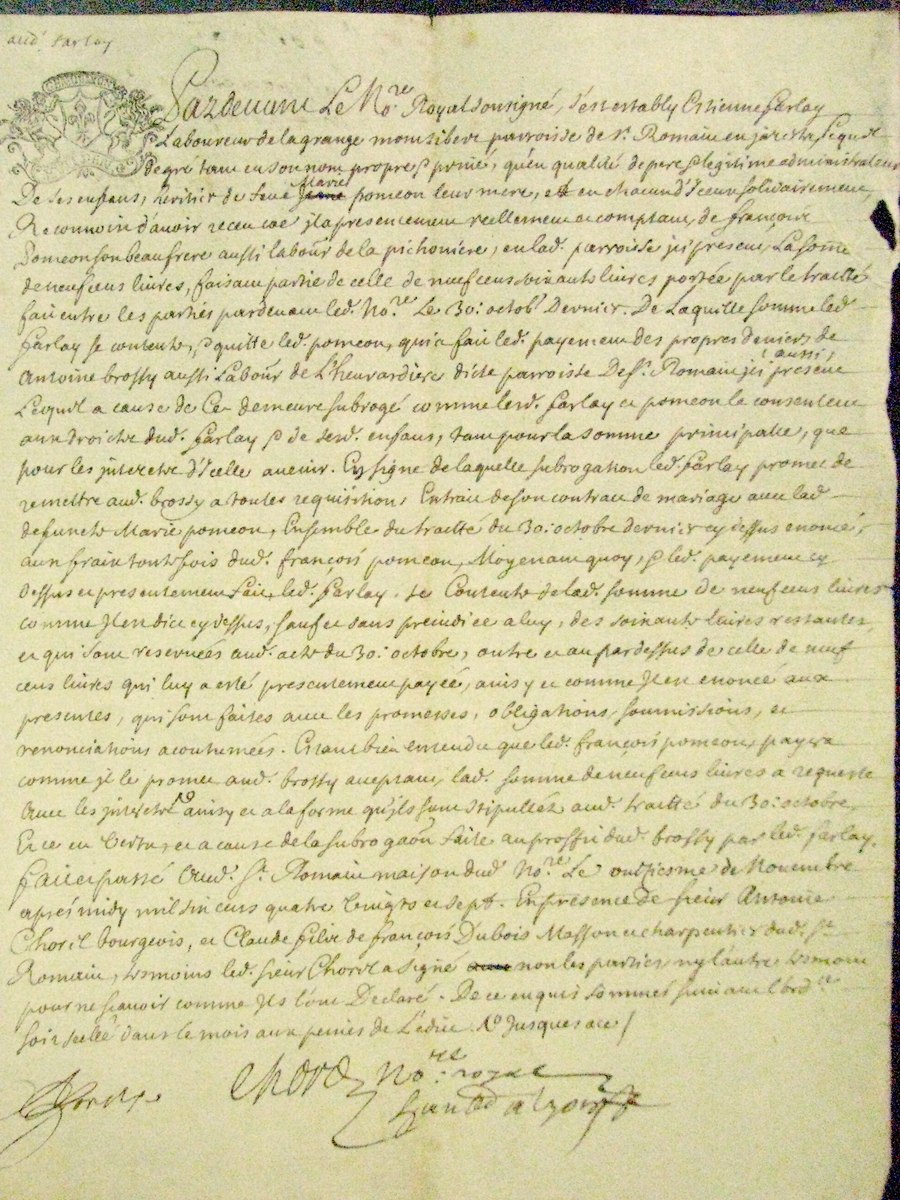 aud. farlay
Pardevant Le No.re Royal sousigné, s'est estably Estienne farlay
Laboureur de la grange parroisse de St. Romain en jarestz, Lequel
de gré tant en son nom propre & privé, qu'en qualité de pere & legitime administrateur
De ses enfans, heritier de feue Marie pomeon leur mere, et en chacun d'iceux sollidairement,
Reconnoit d'avoir receu cejourd'huy presentement reellement et comptant, de françois
Pomeon son beau frere aussi labour. de la pichoniere, en lad. parroisse jci present, La some
de neuf cens livres, faisant partie de celle de neuf cens soixante livres portée par le traitté
fait entre les parties pardevant led. No.re Le 30.e octob. Dernier. De Laquelle somme led.
farlay se contente, & quitte led. pomeon, qui a fait led. payement des propres deniers de
Antoine brossy aussi Labour. de L'heurardiere dicte parroisse De St. Romain jci aussi present
Lequel a cause de Ce demeure subrogé comme lesd. farlay et pomeon le consentent
aux droicts dud. farlay & de sesd. enfans, tant pour la somme principalle, que
pour les jnterets d'Jcelle avenir. En signe de laquelle subrogation led. farlay promet de
remettre aud. brossy a toutes requisitions Extrait de son contract de mariage avec lad.
defuncte Marie pomeon, Ensemble du traitté du 30.e octobre dernier cy dessus enoncé,
aux fraix toutesfois dud. françois pomeon, Moyenant quoy, & led. payement cy
dessus et presentement fait, led. farlay se Contente de lad. somme de neuf cens livres
comme Jl en dict cy dessus, sauf et sans prejudice a luy, des soixante livres restantes,
et qui sont reservées aud. acte du 30.e octobre, outre et au pardessus de celle de neuf
cens livres qui luy a esté presentement payée, ainsy et comme Jl en enoncé aux
presentes, qui sont faites avec les promesses, obligations, soumissions, et
renonciations acoutumées. Estant bien entendu que led. françois pomeon, payera
comme jl le promet aud. brossy acceptant, lad. somme de neuf cens livres a requeste
Avec les jnterets ainsy et a la forme qu'ils sont stipullez aud. traitté du 30.e octobre,
Et ce en Vertu, et a cause de la subrogaon faite au proffit dud. brossy par led. farlay.
fait et passé Aud. St. Romain maison dud. No.re Le onziesme de Novembre
aprés midy mil six cens quatre Vingts et sept. En presence de sieur Antoine
Chorel bourgeois, et Claude filz de françois Dubois Masson et charpentier dud. St.
Romain, tesmoins led. sieur Chorel a signé non les parties ny l'autre tesmoin
pour ne sçavoir comme Jls l'ont Declaré. De ce enquis et sommés suivant l'ord.ce
soit scellé dans le mois aux peines de L'edict Ro. jusques a ce /
Chorel No.re royal